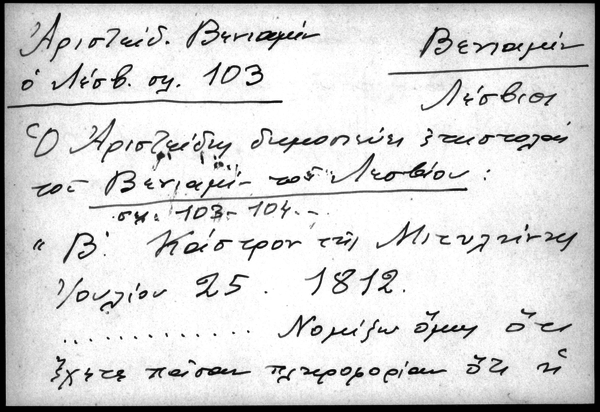 Ἀριστείδ. Βενιαμὶν
ὁ Λέσβ. σελ. 103
Βενιαμὶν
Λέσβιοι
Ὁ Ἀριστείδης δημοσιεύει ἐπιστολὰς
τοῦ Βενιαμὶν τοῦ Λεσβίου :
σελ. 103-104.-
" Β΄. Κάστρον τῆς Μιτυλήνης
Ἰουλίου 25. 1812.
.............. Νομίζω ὅμως ὅτι
ἔχετε πᾶσαν πληροφορίαν ὅτι ἡ